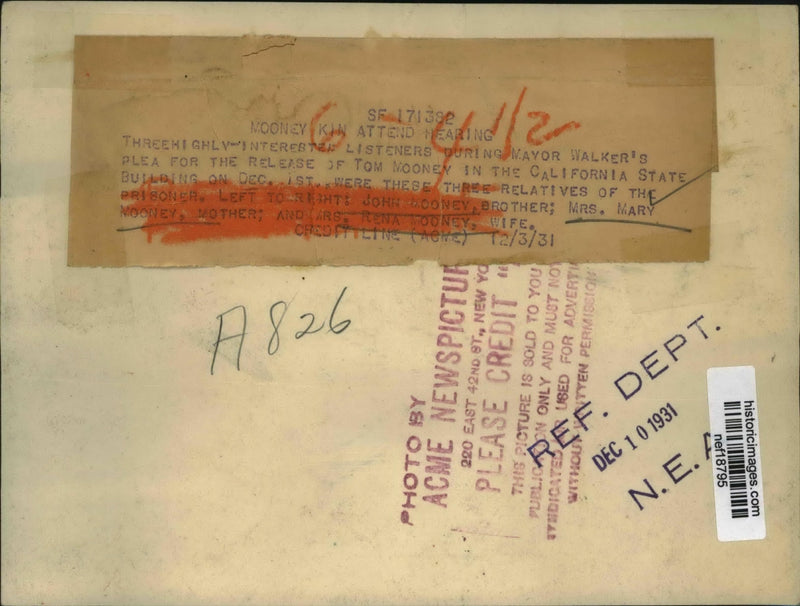 SF 171382
MOONEY KIN ATTEND HEARING
THREEHIGHLY-INTERESTED LISTENERS DURING MAYOR WALKER'S
PLEA FOR THE RELEASE OF TOM MOONEY IN THE CALIFORNIA STATE
BUILDING ON DEC. 1ST. WERE THESE THREE RELATIVES OF THE
PRISONER. LEFT TO RIGHT: JOHN MOONEY, BROTHER; MRS. MARY
MOONEY, MOTHER; AND MRS. RENA MOONEY, WIFE.
CREDIT LINE (ACME) 12/3/31
A826
PHOTO BY
ACME NEWSPICTUR
220 EAST 42ND ST., NEW YO
PLEASE CREDIT "
THIS PICTURE IS SOLD TO YOU
PUBLICATION ONLY AND MUST NOT
SYNDICATED USED FOR ADVERTI
WITHOUT WRITTEN PERMISSION
REF. DEPT.
DEC 10 1931
N.E.A
historicimages.com
nef18795